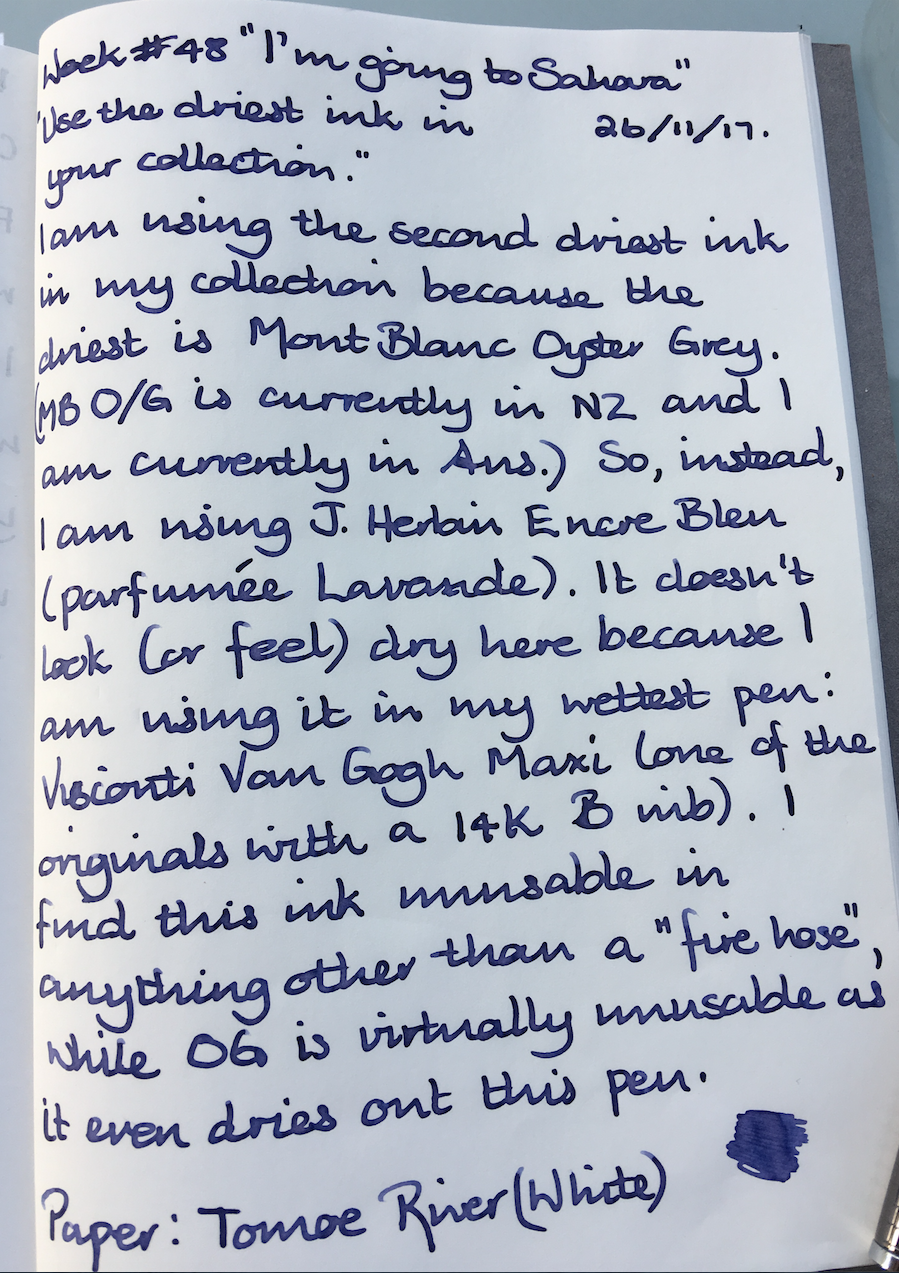 Week #48 "I'm going to Sahara"
"Use the driest ink in 26/11/17.
your collection."
I am using the second driest ink
in my collection because the
driest is Mont Blanc Oyster Grey.
(MB O/G is currently in NZ and I
am currently in Aus.) So, instead,
I am using J. Herbin Encre Bleu
(parfumée Lavande). It doesn't
look (or feel) dry here because I
am using it in my wettest pen:
Visconti Van Gogh Maxi (one of the
originals with a 14K B nib). I
find this ink unusable in
anything other than a "fire hose",
while OG is virtually unusable as
it even dries out this pen.
Paper: Tomoe River (White)